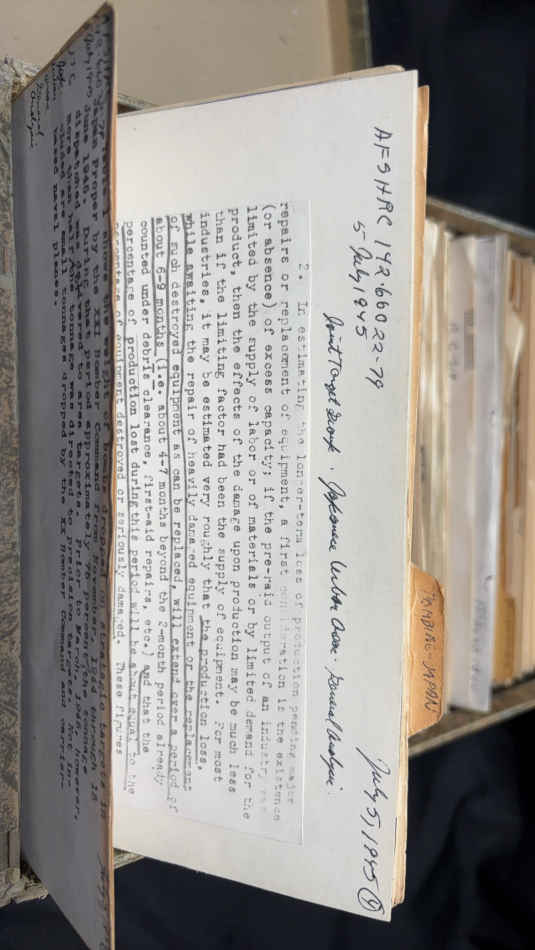 AFSHRC 142.66022-79
5 July 1945
July 5, 1945 (4)
Joint Target Group. Japanese Urban Areas. General Analysis.
2. In estimating the longer-term loss of production pending major
repairs or replacement of equipment, a first consideration is the existence
(or absence) of excess capacity; if the pre-raid output of an industry was
limited by the supply of labor or of materials or by limited demand for the
product, then the effects of the damage upon production may be much less
than if the limiting factor had been the supply of equipment. For most
industries, it may be estimated very roughly that the production loss,
while awaiting the repair of heavily damaged equipment or the replacement
of such destroyed equipment as can be replaced, will extend over a period of
about 6-9 months (i.e. about 4-7 months beyond the 2-month period already
counted under debris clearance, first-aid repairs, etc.) and that the
percentage of production lost during this period will be about equal to the
percentage of equipment destroyed or seriously damaged. These figures
BOMBING-JAPAN
shows the weight of bombs dropped on strategic targets in
Japan proper by the XXI Bomber Command from November, 1944 through 15
June 1945. During that period approximately 70 percent of the tonnage
dispatched was delivered to area targets. Prior to March, 1945 however,
more than half the tonnage was directed to precision targets. Not in-
cluded are small tonnages dropped by the XX Bomber Command and carrier-
based naval planes.
General
Analysis